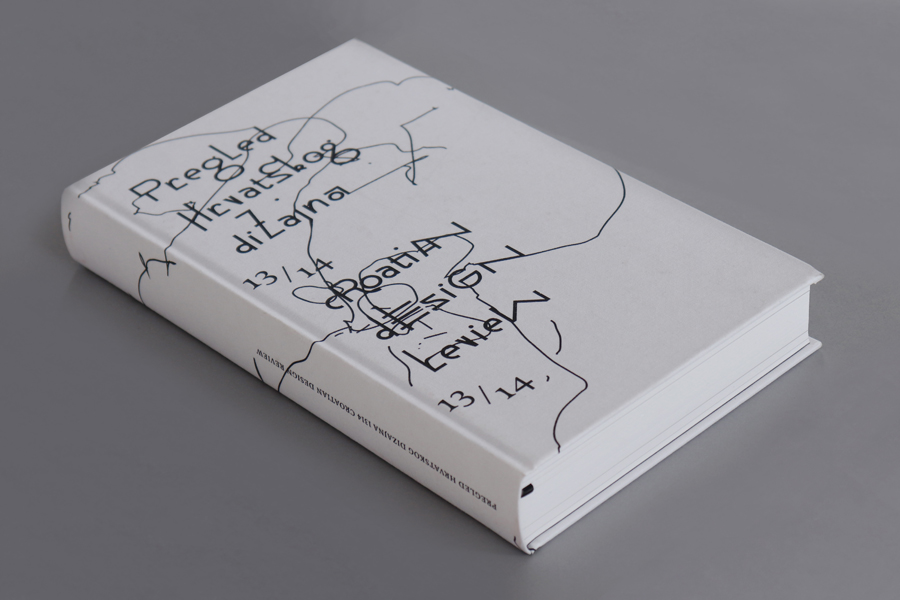 Pregled
Hrvatskog
diZajna
13/14
cRoatiAN
dESiGN
revieW
13/14
PREGLED HRVATSKOG DIZAJNA 1314 CROATIAN DESIGN REVIEW